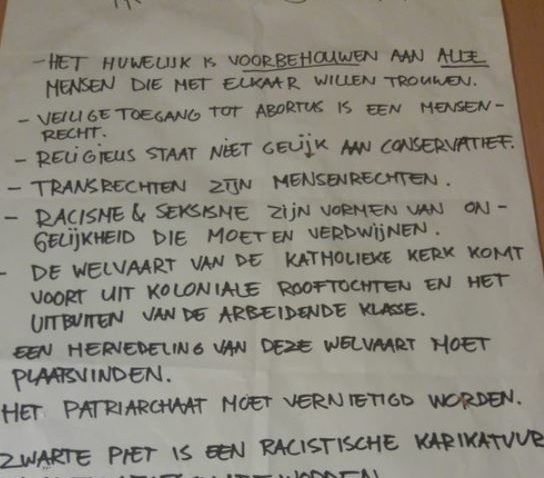 - HET HUWELIJK IS VOORBEHOUWEN AAN ALLE
MENSEN DIE MET ELKAAR WILLEN TROUWEN.
- VEILIGE TOEGANG TOT ABORTUS IS EEN MENSEN-
RECHT.
- RELIGIEUS STAAT NIET GELIJK AAN CONSERVATIEF.
- TRANSRECHTEN ZIJN MENSENRECHTEN.
- RACISME & SEKSISME ZIJN VORMEN VAN ON-
GELIJKHEID DIE MOETEN VERDWIJNEN.
- DE WELVAART VAN DE KATHOLIEKE KERK KOMT
VOORT UIT KOLONIALE ROOFTOCHTEN EN HET
UITBUITEN VAN DE ARBEIDENDE KLASSE.
EEN HERVEDELING VAN DEZE WELVAART MOET
PLAATSVINDEN.
HET PATRIARCHAAT MOET VERNIETIGD WORDEN.
ZWARTE PIET IS EEN RACISTISCHE KARIKATUUR